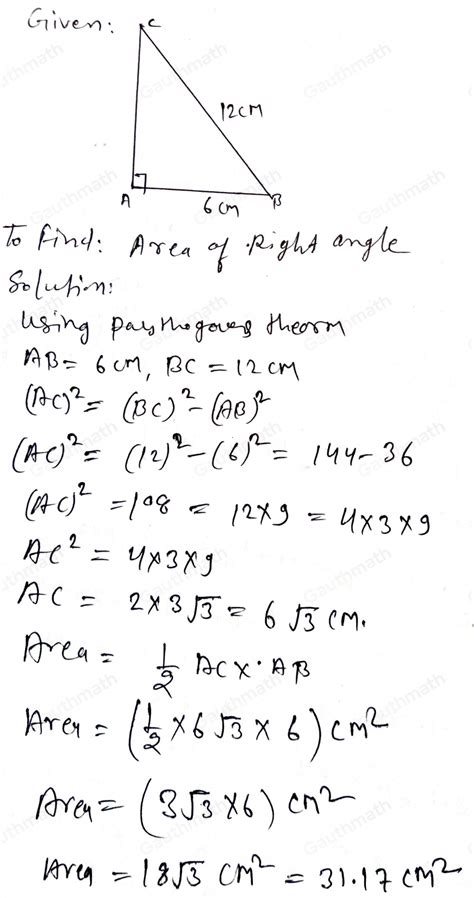 Given:
C
12CM
A
6 cm
B
To find: Area of Right angle
Solution:
Using paythogoves theorm
AB = 6 cm, BC = 12 cm
(AC)² = (BC)² - (AB)²
(AC)² = (12)² - (6)² = 144 - 36
(AC)² = 108 = 12×9 = 4×3×9
AC² = 4×3×9
AC = 2×3√3 = 6√3 cm.
Area = 1/2 AC × AB
Area = (1/2 × 6√3 × 6) cm²
Area = (3√3 × 6) cm²
Area = 18√3 cm² = 31.17 cm²
Gauthmath